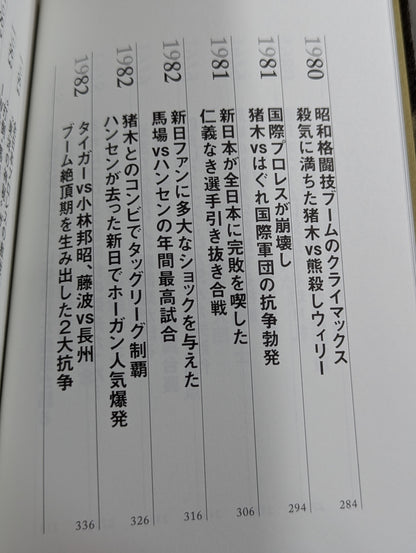 1980
昭和格闘技ブームのクライマックス
殺気に満ちた猪木vs熊殺しウィリー
284
1981
国際プロレスが崩壊し
猪木vsはぐれ国際軍団の抗争勃発
294
1981
新日本が全日本に完敗を喫した
仁義なき選手引き抜き合戦
306
1982
新日ファンに多大なショックを与えた
馬場vsハンセンの年間最高試合
316
1982
猪木とのコンビでタッグリーグ制覇
ハンセンが去った新日でホーガン人気爆発
326
1982
タイガーvs小林邦昭、藤波vs長州
ブーム絶頂期を生み出した2大抗争
336